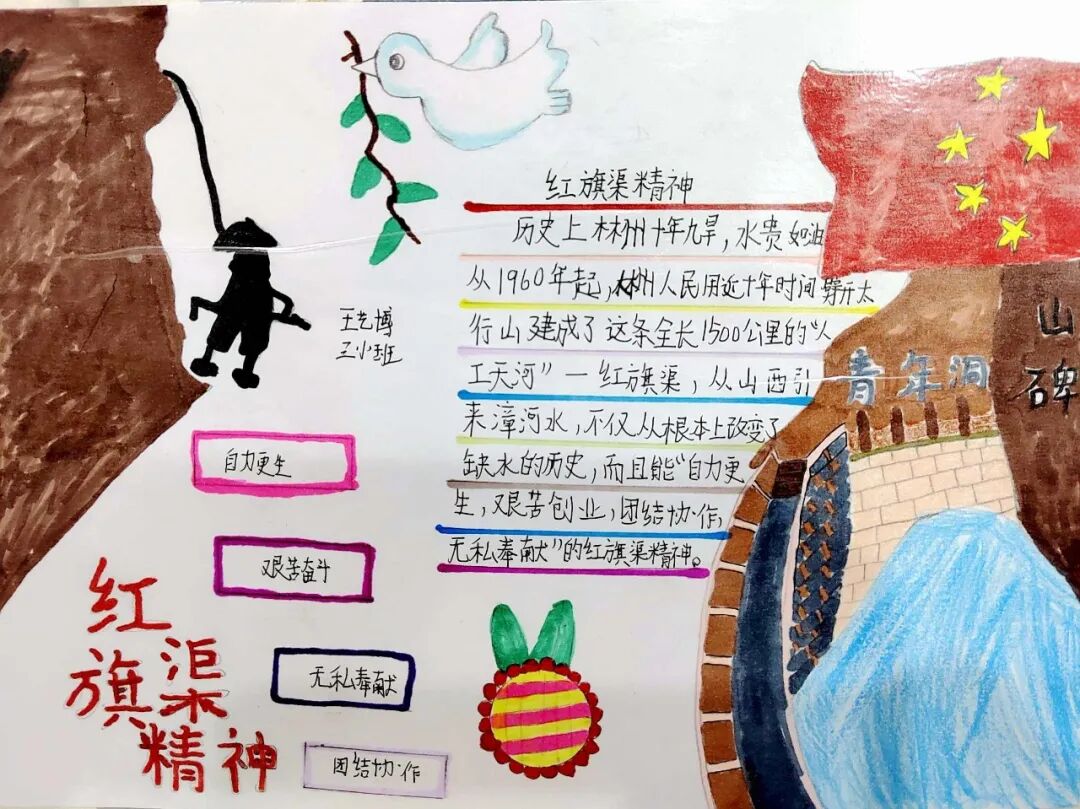 红旗渠精神
历史上林州十年九旱，水贵如油
从1960年起，林州人民用近十年时间开太
行山建成了这条全长1500公里的“人
工天河”一红旗渠，从山西引
来漳河水，不仅从根本上改变了
缺水的历史，而且能“自力更
生，艰苦创业，团结协作，
无私奉献”的红旗渠精神。
王艺博
班
青年洞
山
碑
自力更生
艰苦奋斗
无私奉献
团结协作
红
旗渠
精神